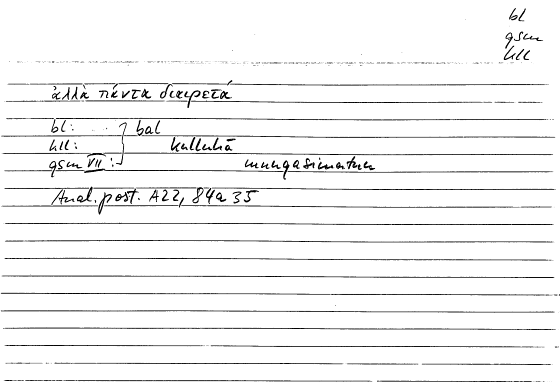 bl
qsm
kll
ἀλλὰ πάντα διαιρετά
bl: bal
kll: kulluhā
qsm VII: munqasimatun
Anal. post. A22, 84a35